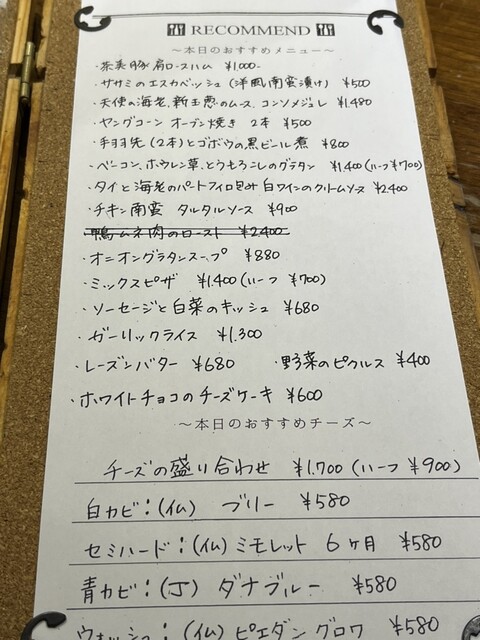 RECOMMEND
～本日のおすすめメニュー～
・茶美豚 肩ロースハム ¥1000-
・ササミのエスカベッシュ (洋風南蛮漬け) ¥500
・天使の海老、新玉葱のムース、コンソメジュレ ¥1,480
・ヤングコーン オーブン焼き 2本 ¥500
・手羽先(2本)とゴボウの黒ビール煮 ¥800
・ベーコン、ホウレン草、とうもろこしのグラタン ¥1,400(ハーフ¥700)
・タイと海老のパートフィロ包み 白ワインのクリームソース ¥2,400
・チキン南蛮 タルタルソース ¥900
・鴨ムネ肉のロースト ¥2,400
・オニオングラタンスープ ¥880
・ミックスピザ ¥1,400(ハーフ ¥700)
・ソーセージと白菜のキッシュ ¥680
・ガーリックライス ¥1,300
・レーズンバター ¥680 ・野菜のピクルス ¥400
・ホワイトチョコのチーズケーキ ¥600
～本日のおすすめチーズ～
チーズの盛り合わせ ¥1,700 (ハーフ ¥900)
白カビ：(仏) ブリー ¥580
セミハード：(仏) ミモレット 6ヶ月 ¥580
青カビ：(丁) ダナブルー ¥580
ウォッシュ：(仏) ピエダングロワ ¥580